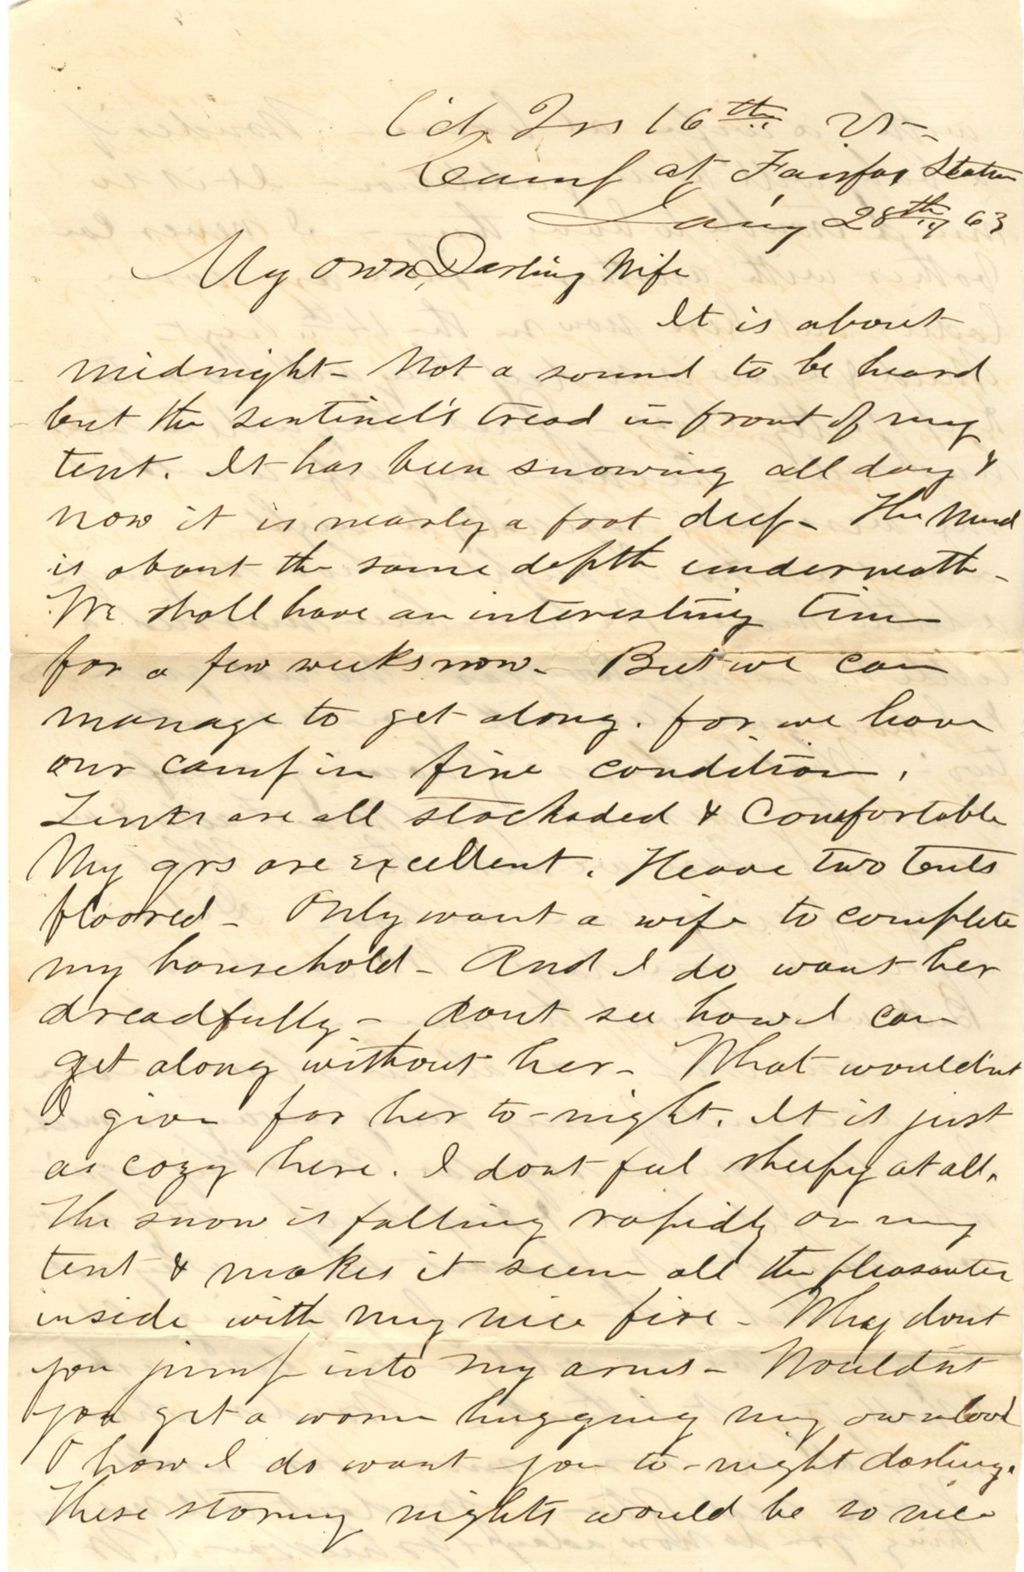 Hd. Qrs 16th Vt-
Camp at Fairfax Station
Jan'y 28th, 63
My own Darling Wife
It is about
midnight- Not a sound to be heard
but the sentinel's tread in front of my
tent. It has been snowing all day &
now it is nearly a foot deep- The Mud
is about the same depth underneath-
We shall have an interesting time
for a few weeks now- But we can
manage to get along. for we have
our camp in fine condition.
Tents are all stockaded & Comfortable
My qrs are excellent. Have two tents
floored- Only want a wife to complete
my household- And I do want her
dreadfully- dont see how I can
get along without her- What wouldnt
I give for her to-night. It is just
as cozy here. I dont feel sleepy at all.
The snow is falling rapidly on my
tent & makes it seem all the pleasanter
inside with my nice fire- Why dont
you jump into my arms- Wouldnt
you get a warm hugging my own love
O how I do want you to-night darling.
These stormy nights would be so nice